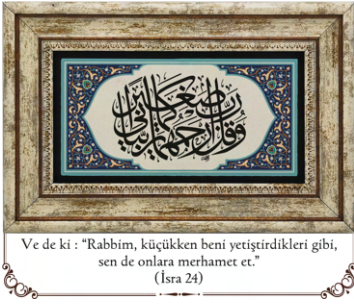 وقل رب ارحمهما كما ربياني صغيرا
Ve de ki : “Rabbim, küçükken beni yetiştirdikleri gibi,
sen de onlara merhamet et.”
(İsra 24)